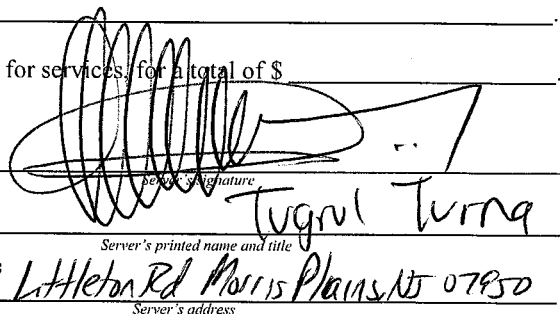 for services, for a total of $ .
Server's signature
Tugrul Turna
Server's printed name and title
Littleton Rd Morris Plains, NJ 07950
Server's address